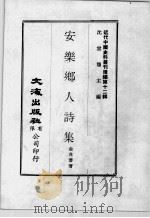 近代中國史料叢刊續編第十二輯
沈雲龍主編
安樂鄉人詩集
金兆蕃著
文海出版社有限公司印行